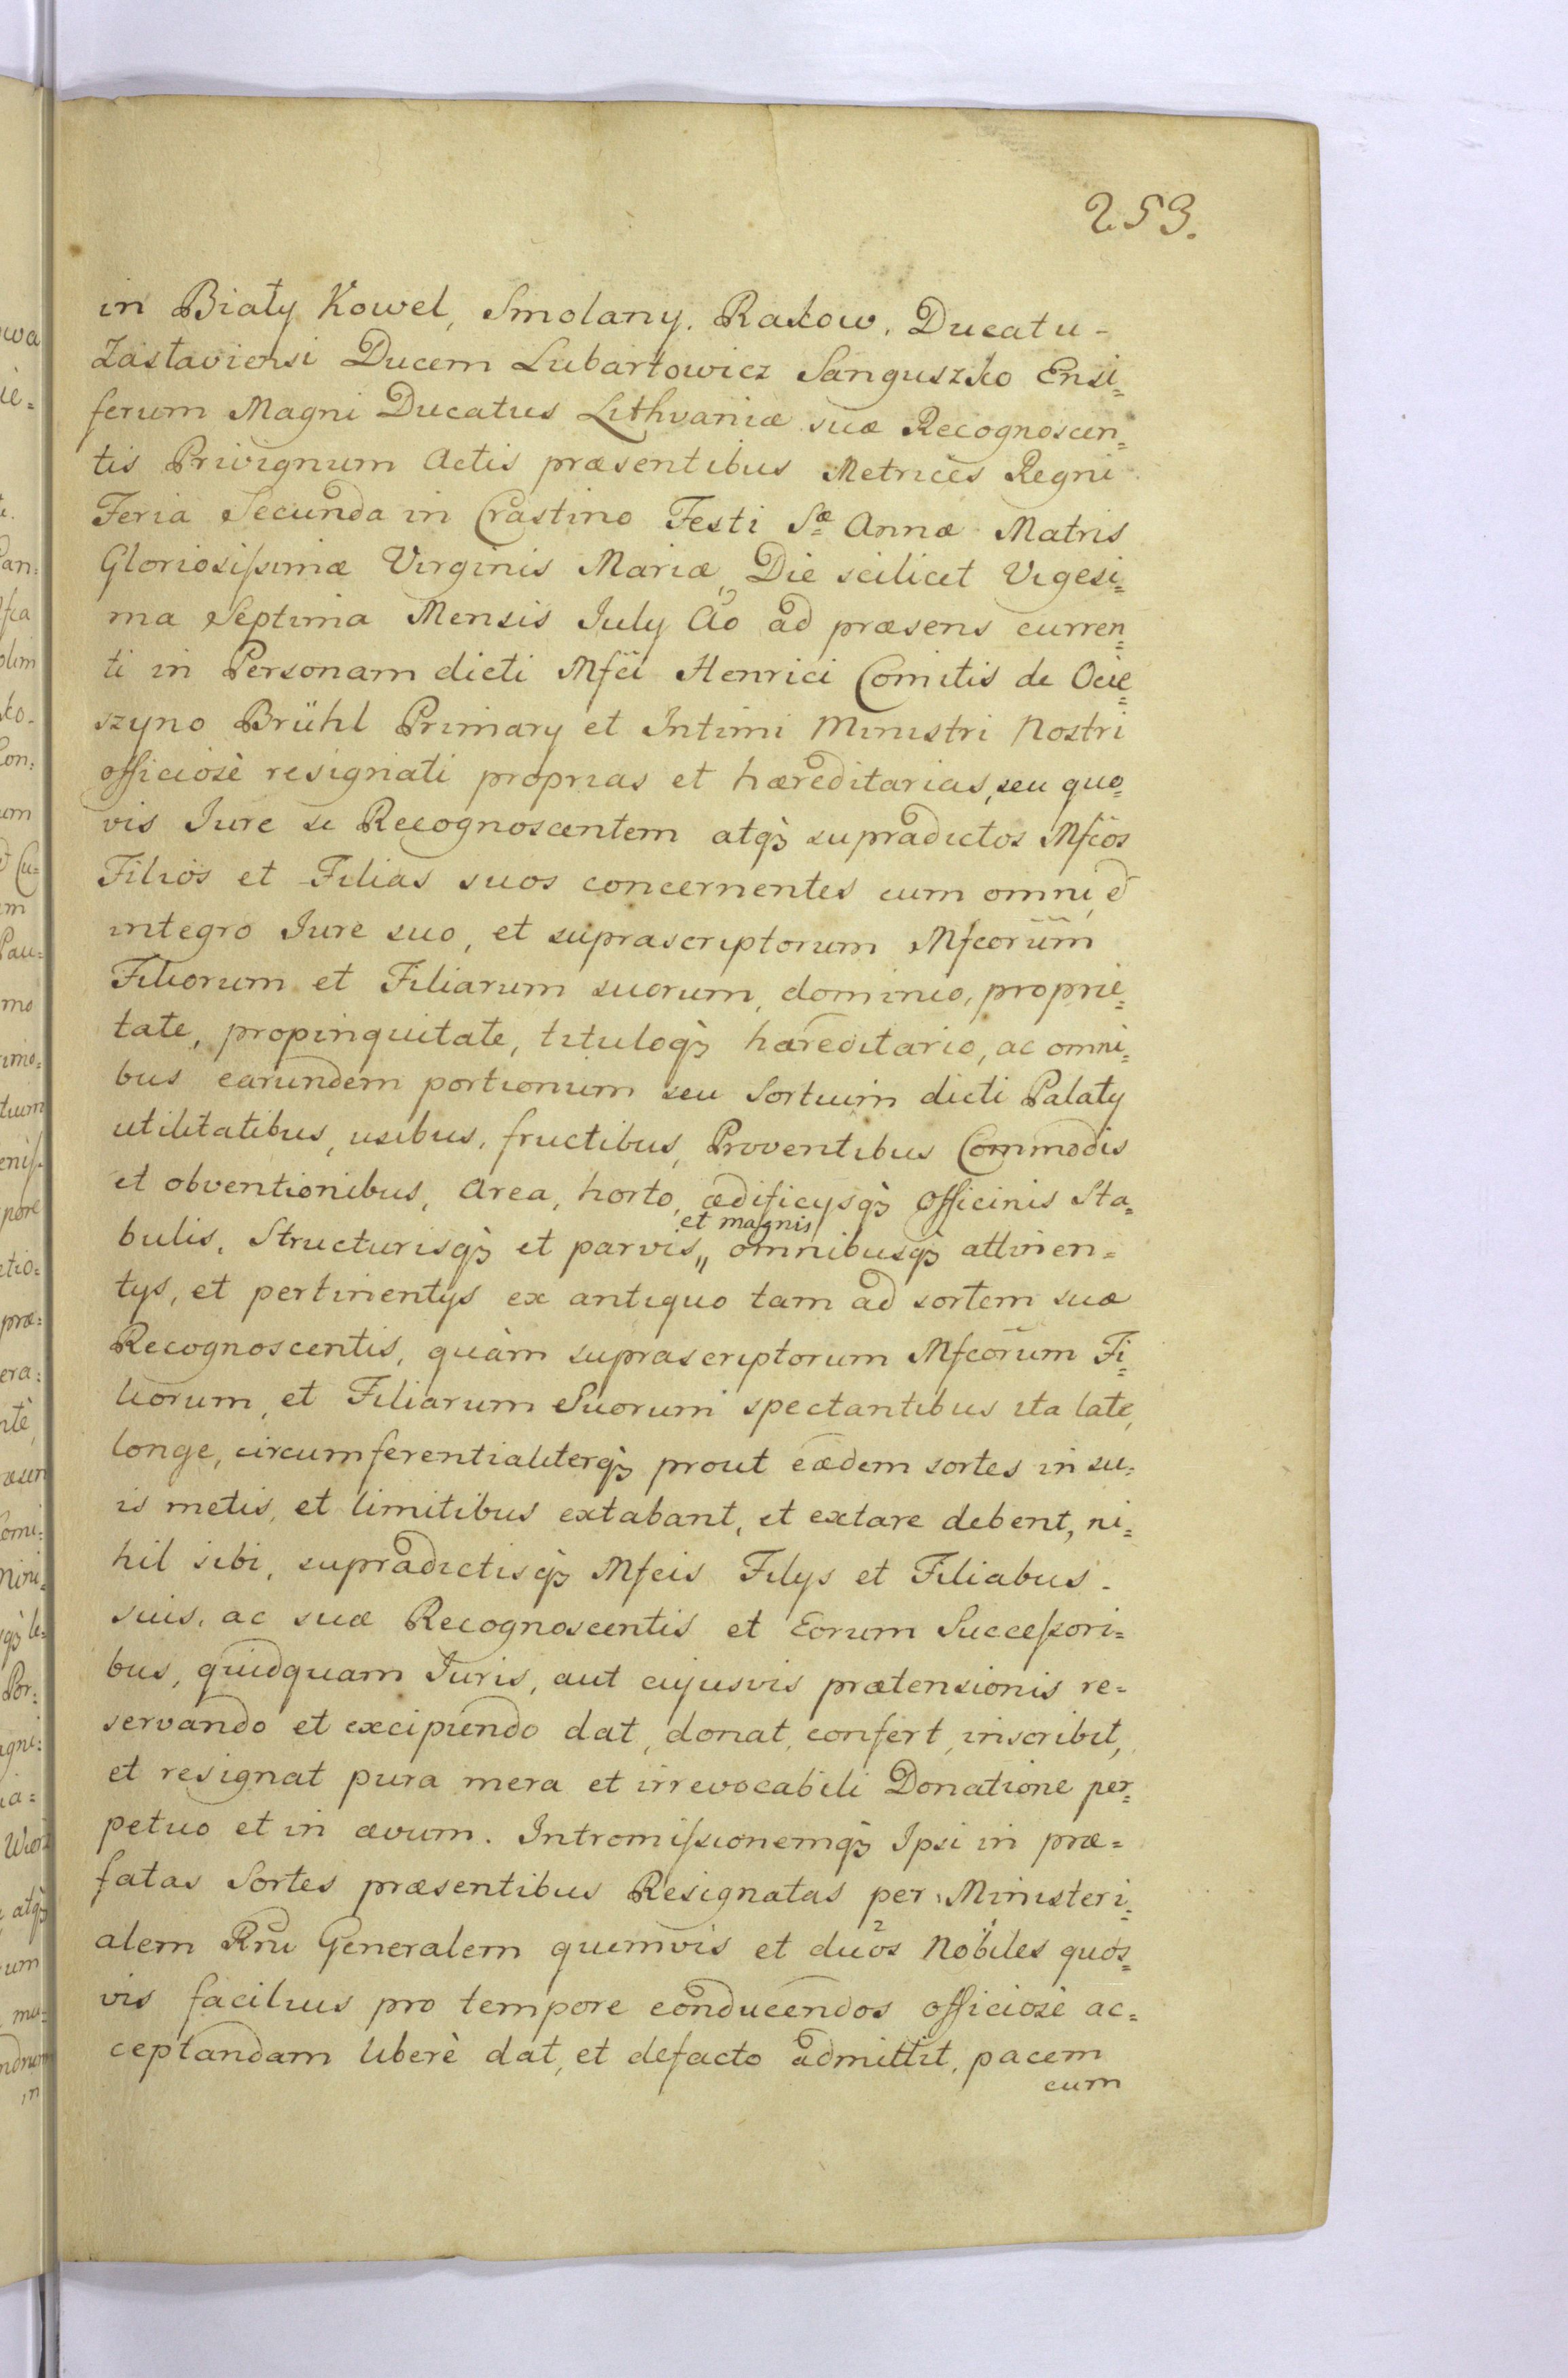 253.
in Biały Kowel, Smolany, Rakow, Ducatu-
Zaslaviensi Ducem Lubartowicz Sanguszko Ensi=
ferum Magni Ducatus Lithvaniæ suæ Recognoscen=
tis Privignum Actis præsentibus Metrices Regni
Feria Secunda in Crastino Festi Sæ Annæ Matris
Gloriosissimæ Virginis Mariæ, Die scilicet Vigesi=
ma Septima Mensis July Ao ad præsens curren=
ti in Personam dicti Mfci Henrici Comitis de Ocie=
szyno Brühl Primary et Intimi Ministri Nostri
officiosè resignati proprias et hæreditarias, seu quo=
vis Jure se Recognoscentem atq̀ supradictos Mfcos
Filios et Filias suos concernentes cum omni, et
integro Jure suo, et suprascriptorum Mfcorum
Filiorum et Filiarum suorum, dominio, proprie=
tate, propinquitate, tituloq̀ hæreditario, ac omni=
bus earundem portionum seu Sortium dicti Palaty
utilitatibus, usibus, fructibus, Proventibus Commodis
et obventionibus, Area, horto, ædificysq̀ Officinis Sta=
et magnis
bulis, Structurisq̀ et parvis,, omnibusq̀ attinen=
tys, et pertinentys ex antiquo tam ad sortem suæ
Recognoscentis, quàm suprascriptorum Mfcorum Fi=
liorum, et Filiarum Suorum spectantibus ita late,
longe, circumferentialiterq̀ prout eædem sortes in su=
is metis, et limitibus extabant, et extare debent, ni=
hil sibi, supradictisq̀ Mfcis Filys et Filiabus-
suis, ac suæ Recognoscentis et Eorum Successori=
bus, quidquam Juris, aut cujusvis prætensionis re=
servando et excipiendo dat, donat, confert, inscribit,
et resignat pura mera et irrevocabili Donatione per=
petuo et in ævum. Intromissionemq̀ Ipsi in præ=
fatas Sortes præsentibus Resignatas per Ministeri=
alem Rni Generalem quemvis et duos Nobiles quos=
vis facilius pro tempore conducendos officiosè ac=
ceptandam liberè dat, et defacto admittit, pacem
cum